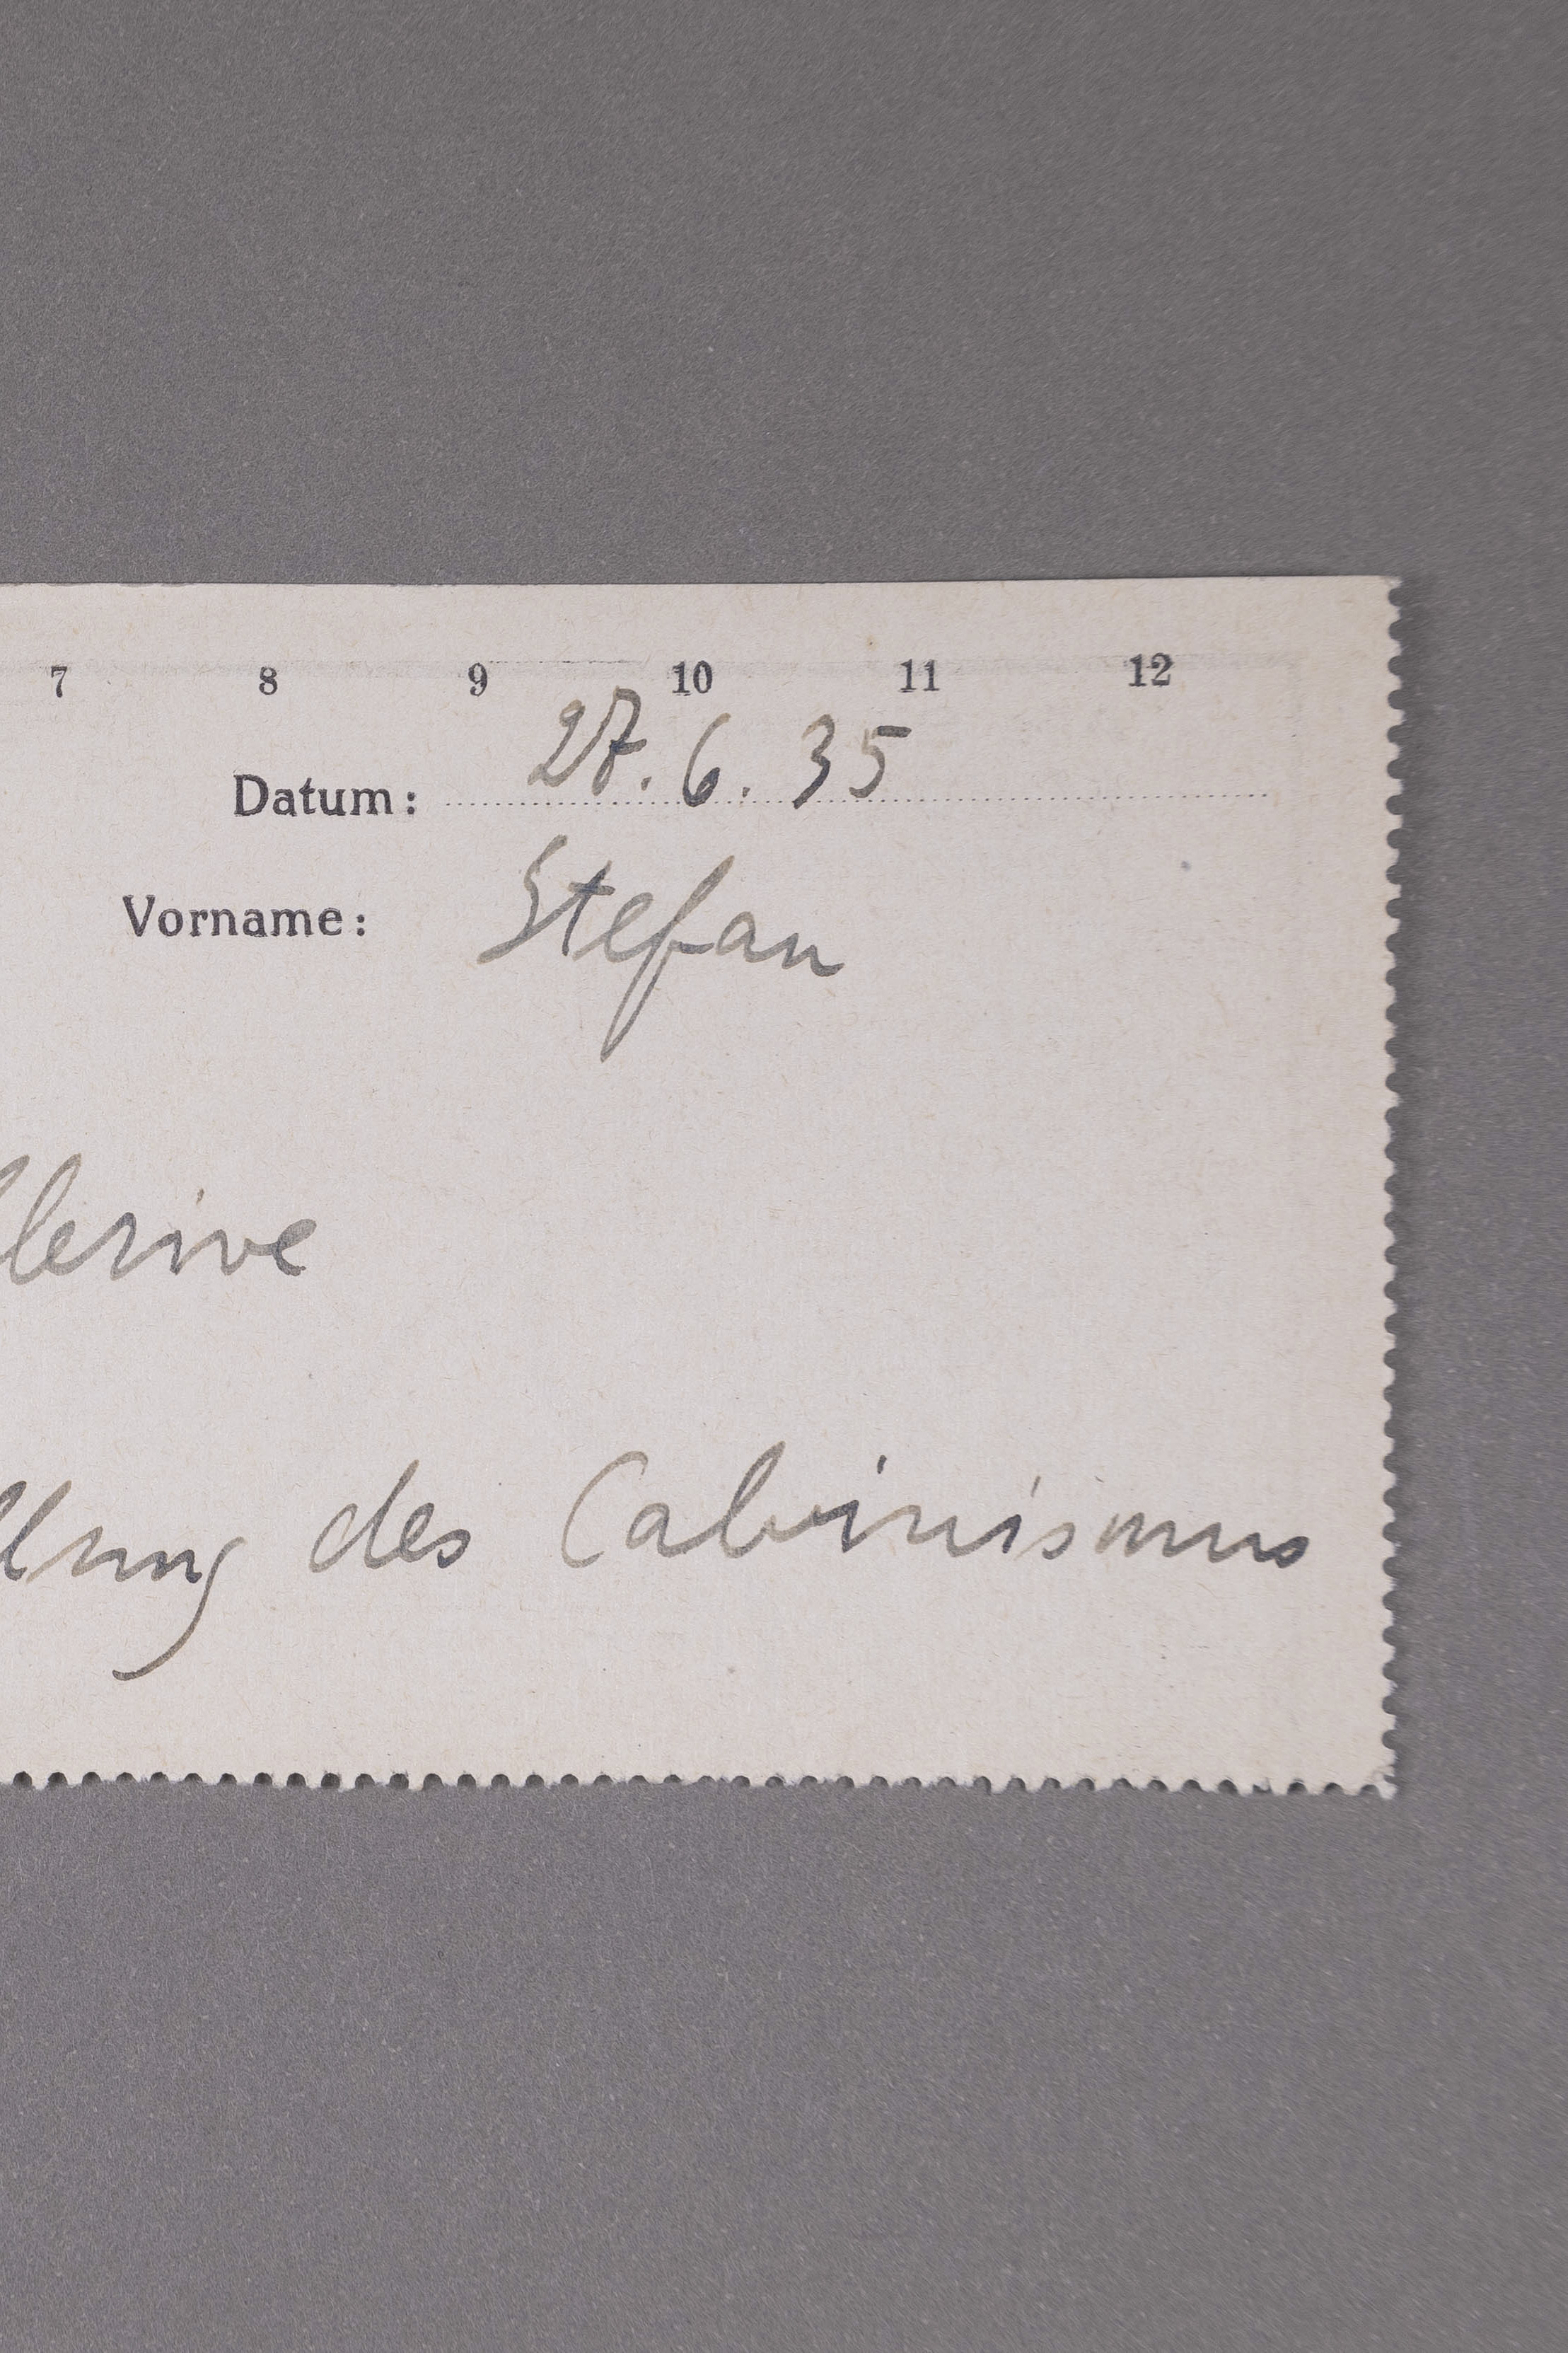 7 8 9 10 11 12
Datum: 27. 6. 35
Vorname: Stefan
llerive
llung des Calvinismus